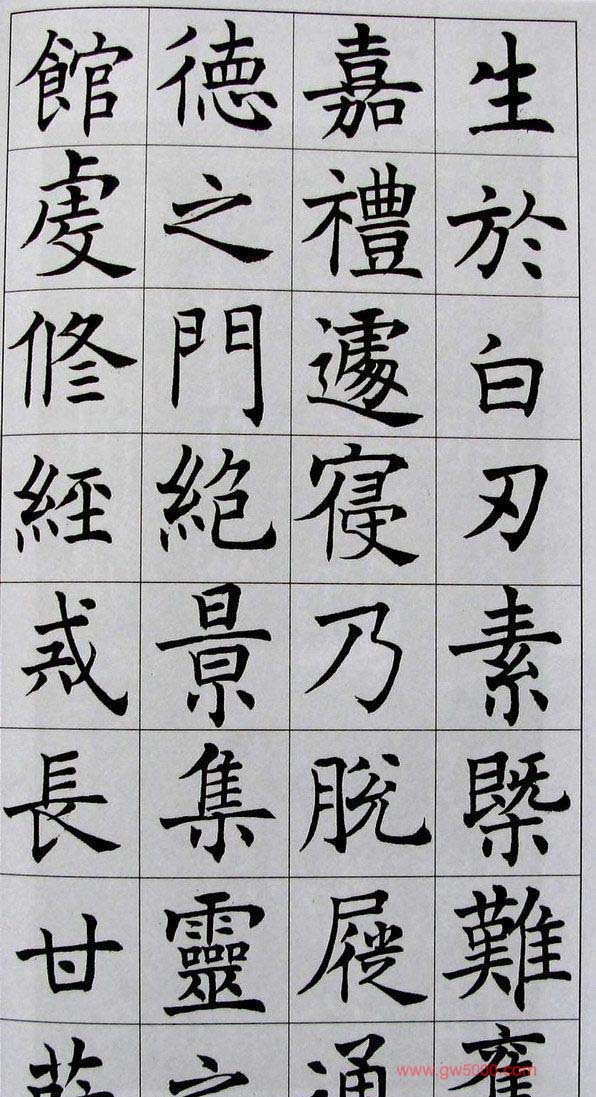 生於白刃素槩難
嘉禮遽寢乃脫屣通
德之門絕景集靈之
館虔修經戒長甘
www.gw5000.com